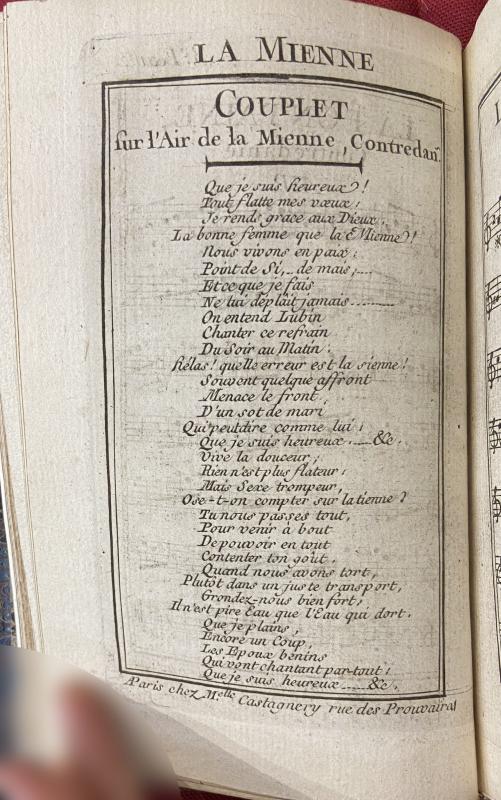 LA MIENNE
COUPLET
sur l'Air de la Mienne, Contredan.
Que je suis heureux!
Tout flatte mes vœux;
Je rends grace aux Dieux.
La bonne femme que la Mienne!
Nous vivons en paix;
Point de Si,... de mais;....
Et ce que je fais
Ne lui déplait jamais.........
On entend Lubin
Chanter ce refrain
Du Soir au Matin.
Hélas! quelle erreur est la sienne!
Souvent quelque affront
Menace le front,
D'un sot de mari
Qui peut dire comme lui;
Que je suis heureux.....&c.
Vive la douceur;
Rien n'est plus flateur;
Mais Sexe trompeur,
Ose-t-on compter sur la tienne?
Tu nous passes tout,
Pour venir à bout
De pouvoir en tout
Contenter ton goût.
Quand nous avons tort,
Plutôt dans un juste transport,
Grondez-nous bien fort;
Il n'est pire Eau que l'Eau qui dort.
Que je plains,
Encore un Coup,
Les Epoux benins
Qui vont chantant par-tout;
Que je suis heureux.....&c.
Paris chez Melle Castagnery rue des Prouvaires